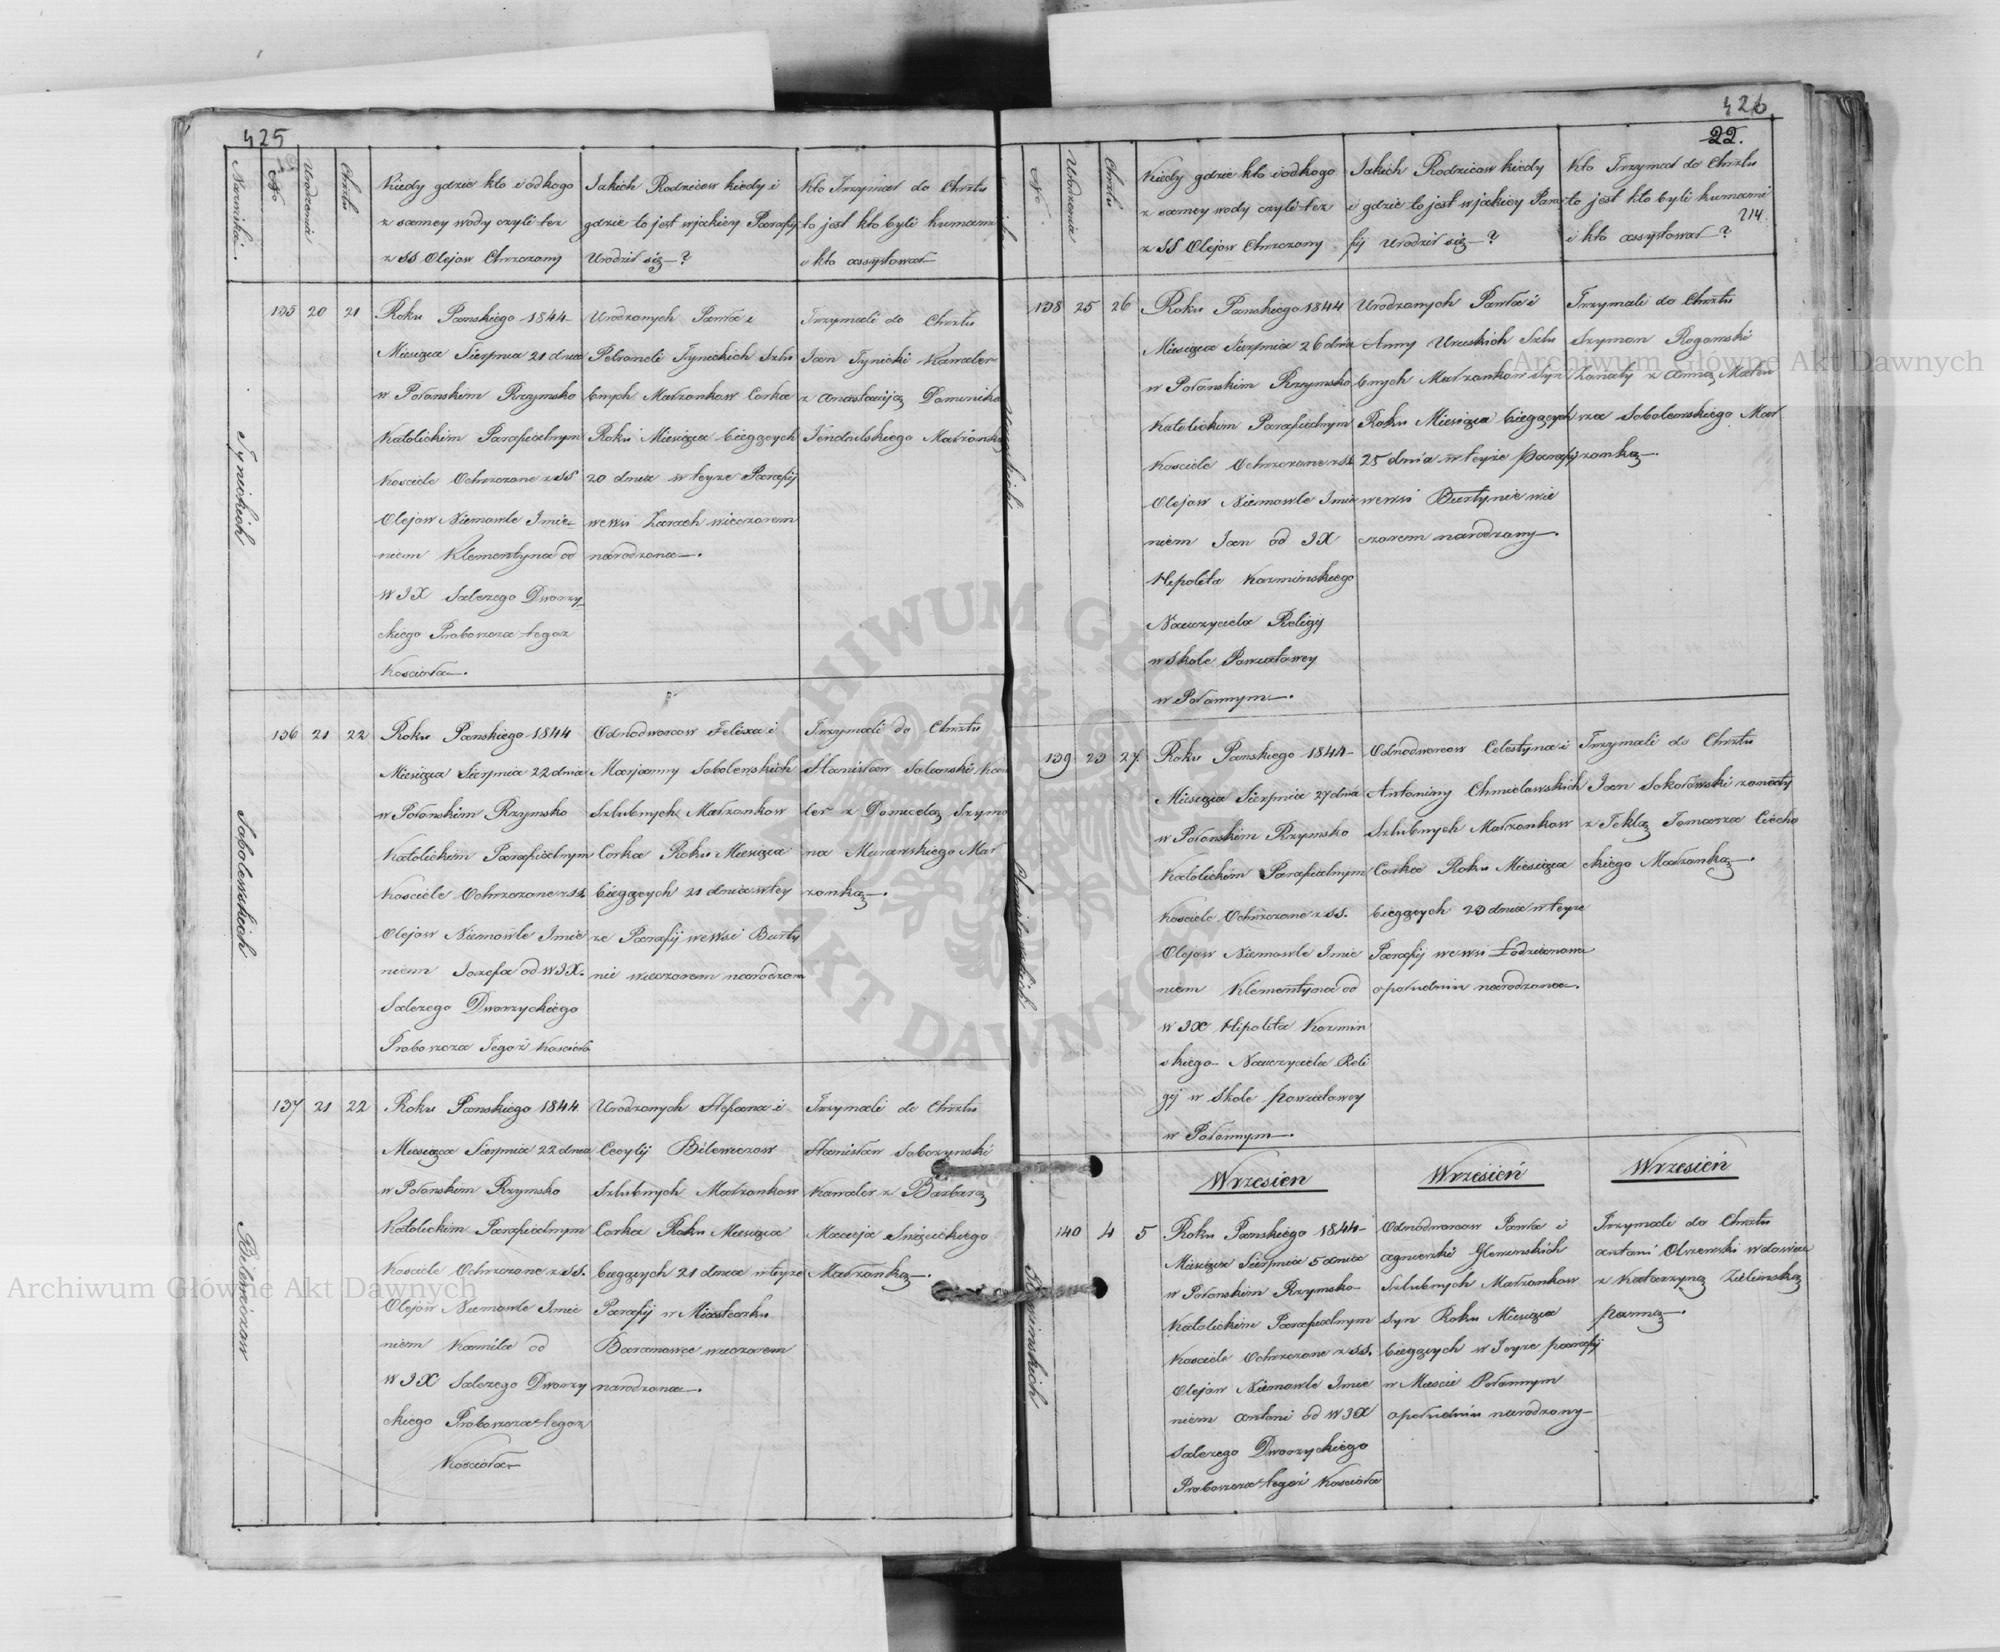 425
Nazwiska.
No
Urodzenia
Chrztu
Kiedy gdzie kto i od kogo
z samey wody czyli tez
z SS Olejow Chrzczony
Jakich Rodzicow kiedy i
gdzie to jest w jakiey Parafij
Urodził się?
Kto Trzymał do Chrztu
to jest kto byli kumami
i kto assystował
Tynickich
135 20 21
Roku Panskiego 1844
Miesiąca Sierpnia 21 dnia
w Połonskim Rzymsko
Katolickim Parafialnym
Kosciele Ochrzczone z SS
Olejow Niemowle Imie-
niem Klementyna od
W JX Salezego Dworzy-
ckiego Proboszcza tegoz
Kosciola.
Urodzonych Pawła i
Petroneli Tynickich Szlu
bnych Małzonkow Corka
Roku Miesiąca bieązących
20 dnia w teyze Parafij
we wsi Zarach wieczorem
narodzona.
Trzymali do Chrztu
Jan Tynicki Kawaler
z Anastazyą Dominika
Jendrulskiego Małżonką
Sobolewskich
136 21 22
Roku Panskiego 1844
Miesiąca Sierpnia 22 dnia
w Połonskim Rzymsko
Katolickim Parafialnym
Kosciele Ochrzczone z SS.
Olejow Niemowle Imie
niem Jozefa od W JX.
Salezego Dworzyckiego
Proboszcza Tegoż Kosciola
Odnodworcow Felixa i
Marjanny Sobolewskich
Szlubnych Małzonkow
Corka Roku Miesiąca
bieązących 21 dnia w tey
ze Parafij we Wsi Burty
nie wieczorem narodzona
Trzymali do Chrztu
Stanisław Kawa
ler z Domicelą Szymo
na Murawskiego Mał
zonką.
Bilewiczow
137 21 22
Roku Panskiego 1844
Miesiąca Sierpnia 22 dnia
w Połonskim Rzymsko
Katolickim Parafialnym
Kosciele Ochrzczone z SS.
Olejow Niemowle Imie
niem Kamila od
W JX Salezego Dworzy
ckiego Proboszcza tegoz
Kosciola
Urodzonych Stefana i
Cecylij Bilewiczow
Szlubnych Małzonkow
Corka Roku Miesiąca
bieązących 21 dnia w teyze
Parafij w Miasteczku
Baranowce wieczorem
narodzona.
Trzymali do Chrztu
Stanisław Sobczynski
Kawaler z Barbarą
Macieja
Małzonką.
426
22.
214.
No
Urodzenia
Chrztu
Kiedy gdzie kto i od kogo
z samey wody czyli tez
z SS Olejow Chrzczony
Jakich Rodzicow kiedy
i gdzie to jest w jakiey Para
fij Urodził się?
Kto Trzymał do Chrztu
to jest kto byli kumami
i kto assystował?
138 25 26
Roku Panskiego 1844
Miesiąca Sierpnia 26 dnia
w Połonskim Rzymsko
Katolickim Parafialnym
Kosciele Ochrzczone z SS.
Olejow Niemowle Imie
niem Jan od JX
Hipolita Kozminskiego
Nauczyciela Religij
w Skole Powiatowey
w Połonnym.
Urodzonych Pawła i
Anny Uruskich Szlu
bnych Małzonkow Syn
Roku Miesiąca bieązących
25 dnia w teyże Parafij
we wsi Burtynie wie
czorem narodzony.
Trzymali do Chrztu
Szymon Rogowski
Zonaty z Anną Mateu
sza Sobolewskiego Mał
zonką.
139 23 27
Roku Panskiego 1844
Miesiąca Sierpnia 27 dnia
w Połonskim Rzymsko
Katolickim Parafialnym
Kosciele Ochrzczone z SS.
Olejow Niemowle Imie
niem Klementyna od
W JX Hipolita Kozmin
skiego Nauczyciela Reli
gij w Skole powiatowey
w Połonnym.
Odnodworcow Celestyna i
Antoniny Chmielowskich
Szlubnych Małzonkow
Corka Roku Miesiąca
bieązących 23 dnia w teyze
Parafij we wsi Łodzianowa
opołudniu narodzona.
Trzymali do Chrztu
Jan Sokołowski zonaty
z Teklą Tomasza Ciecho
ckiego Małzonką.
Wrzesien
Wrzesień
Wrzesień
140 4 5
Roku Panskiego 1844
Miesiąca Sierpnia 5 dnia
w Połonskim Rzymsko
Katolickim Parafialnym
Kosciele Ochrzczone z SS.
Olejow Niemowle Imie
niem Antoni od W JX
Salezego Dworzyckiego
Proboszcza tegoż Kosciola
Odnodworcow Pawła i
Agnieszki
Szlubnych Małzonkow
Syn Roku Miesiąca
bieązących w Teyze parafij
w Miescie Połonnym
opołudniu narodzony
Trzymali do Chrztu
Antoni Olszewski wdowiec
z Katarzyną Zielinską
panną.
Archiwum Główne Akt Dawnych
Archiwum Główne Akt Dawnych
ARCHIWUM GŁÓWNE AKT DAWNYCH